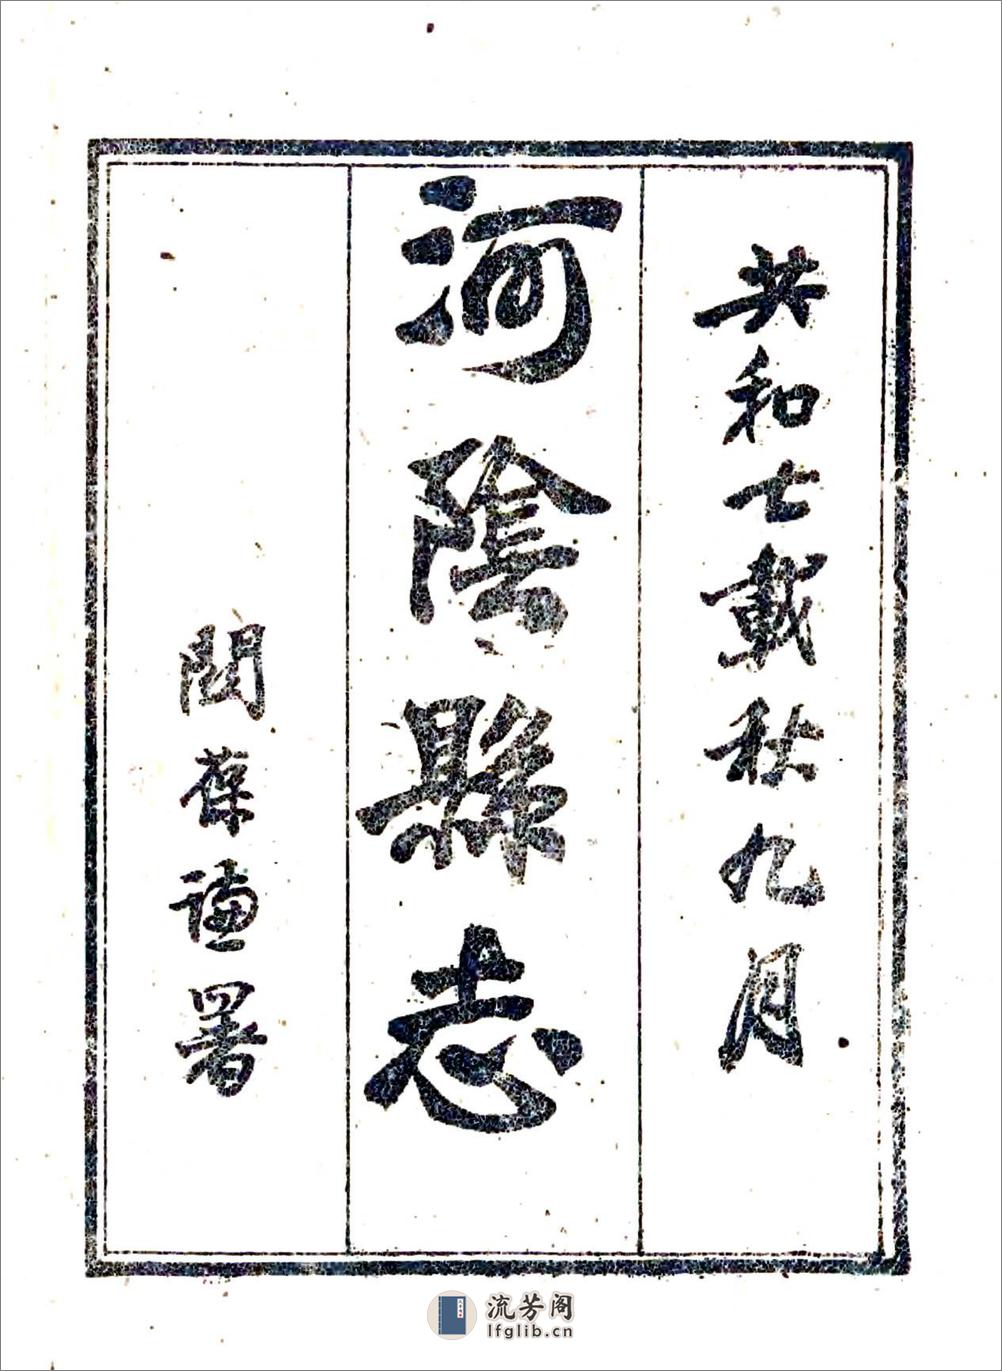 共和七載秋九月
河陰縣志
閻葆謙署
流芳阁
lfglib.cn